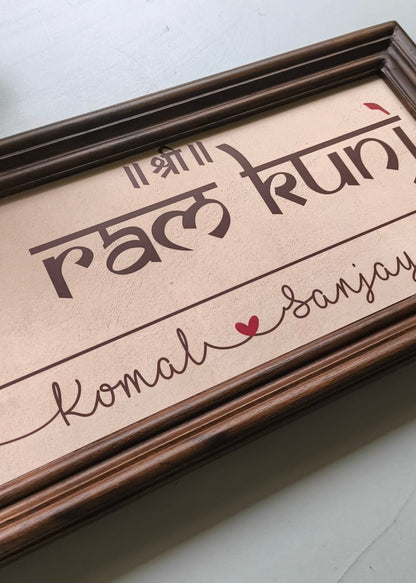 ॥ श्री ॥
ram kunj
Komal Sanjay